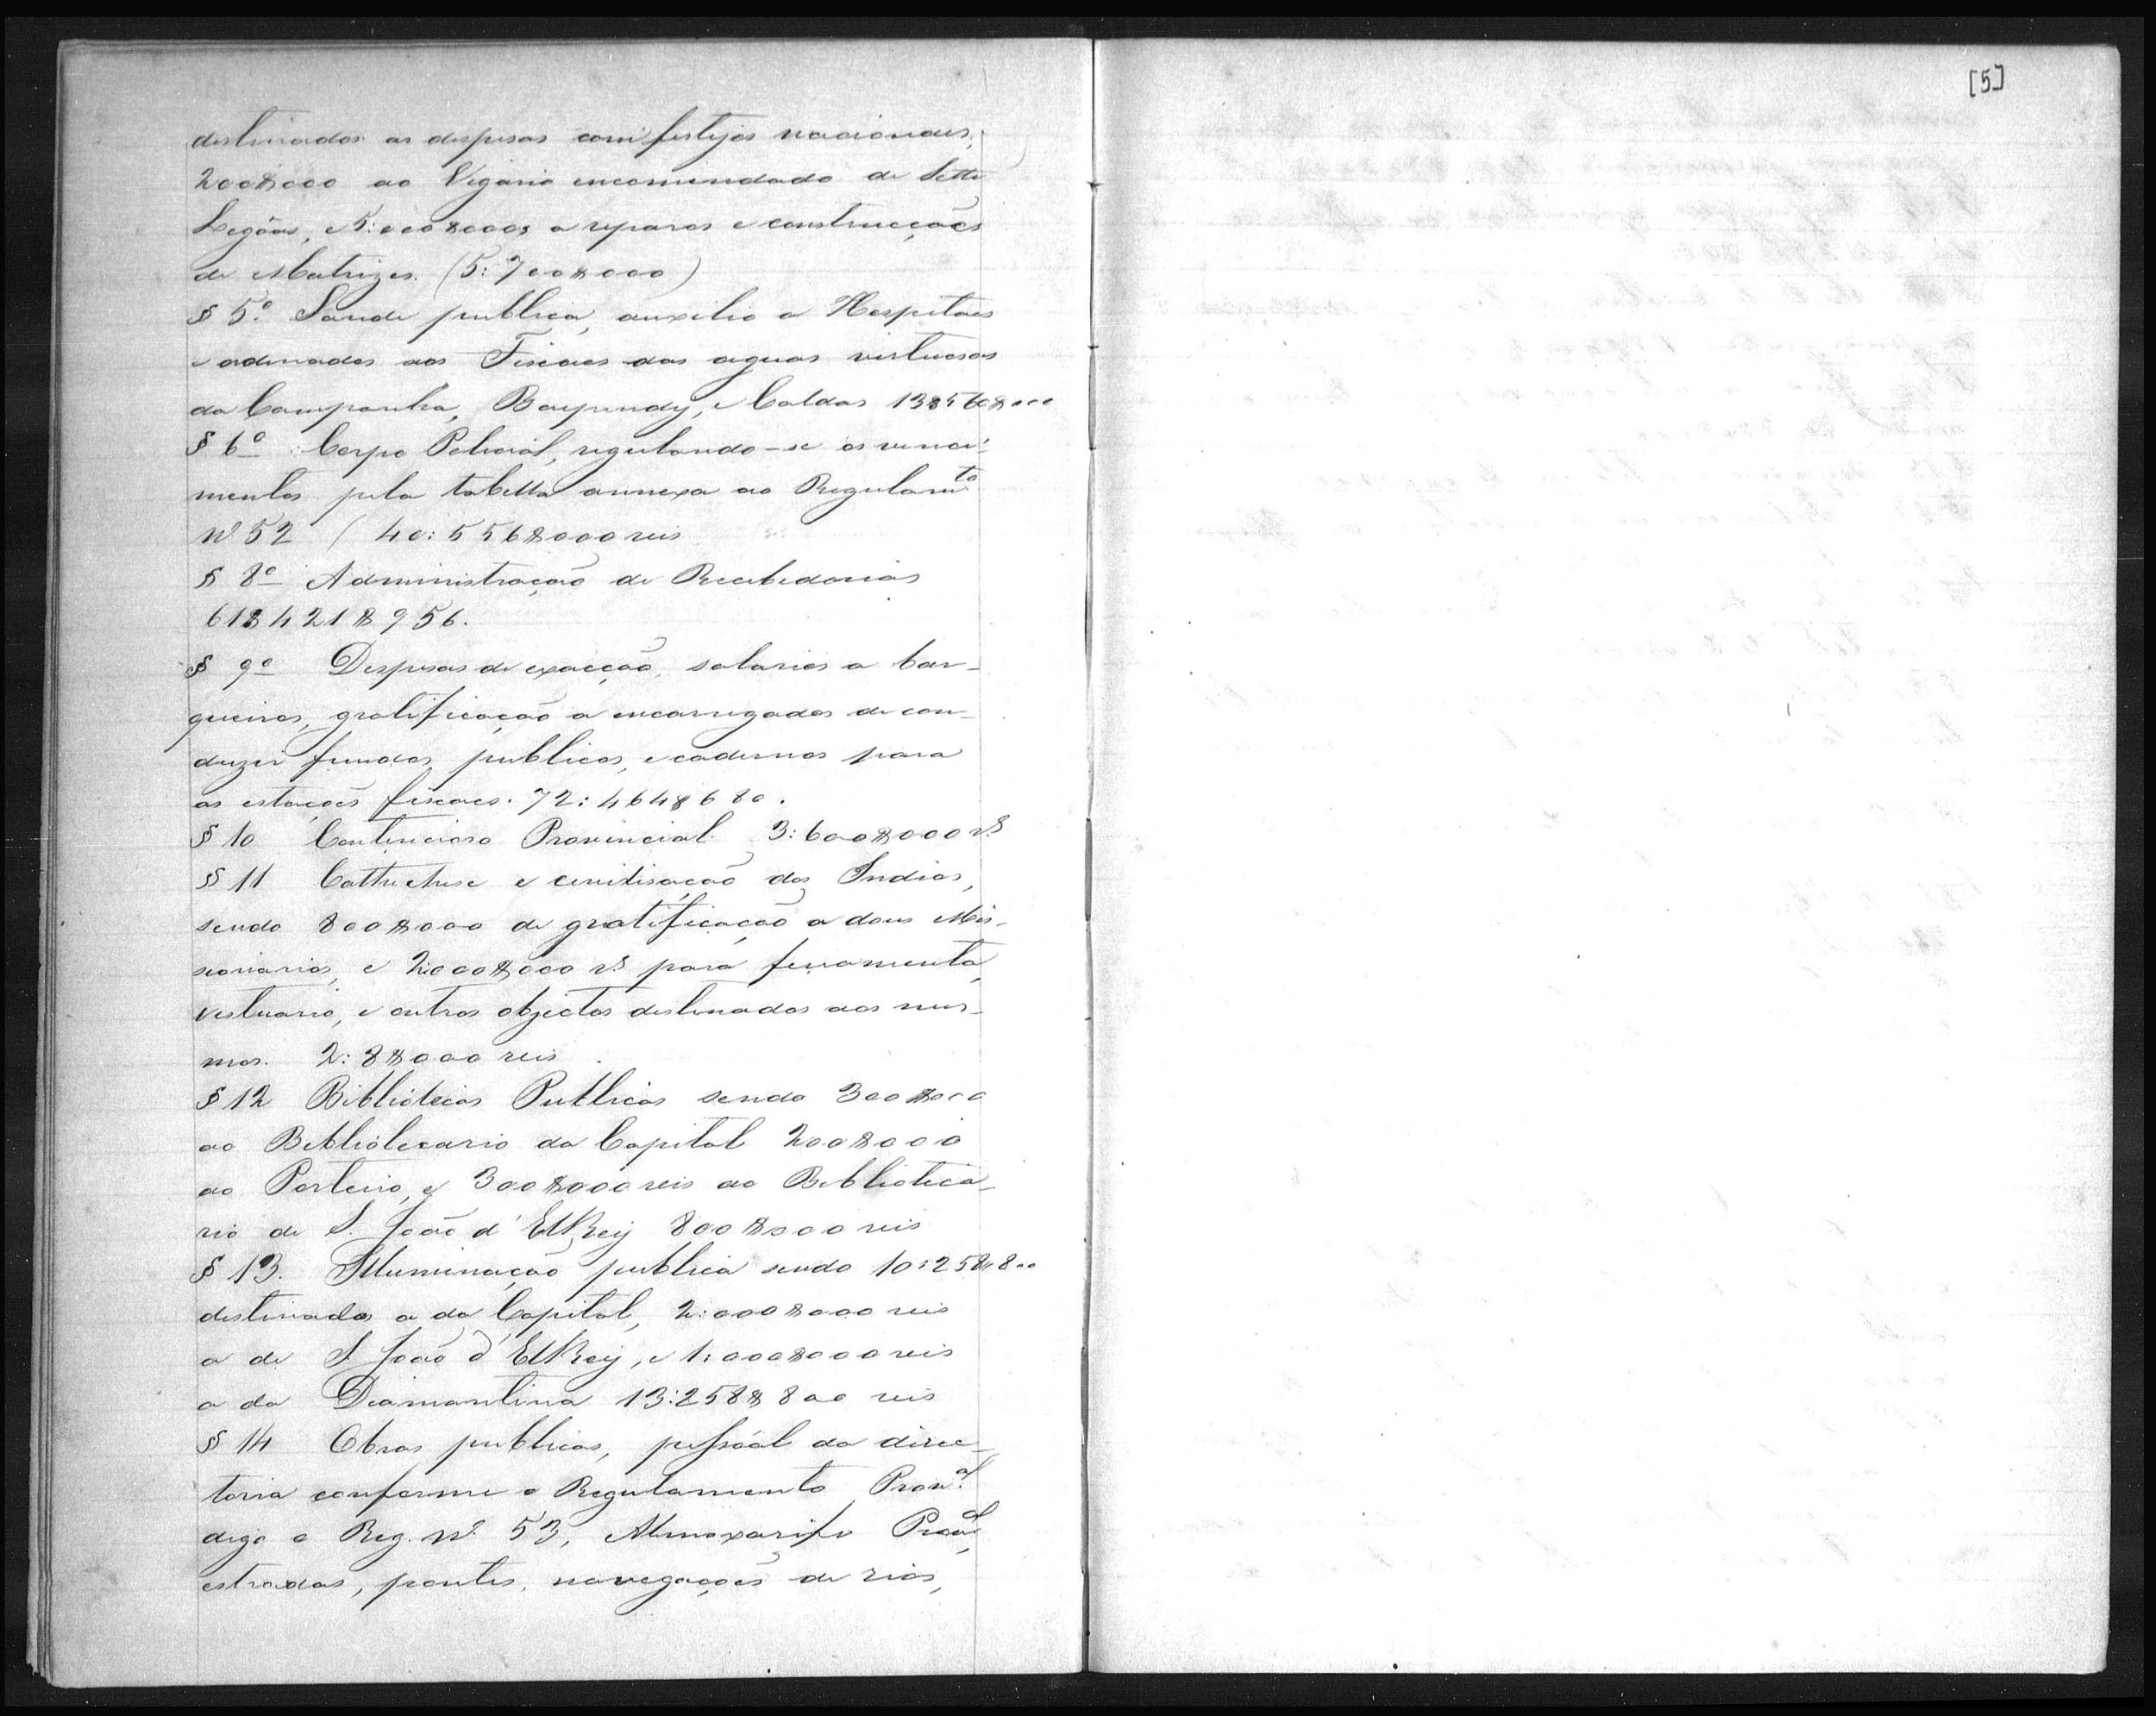 destinados as despesas com festejos nacionaes,
200$000 ao Vigario encomendado de Sette
Legôas, e 5:000$000, a reparos e construcções
de Matrizes. (5:700$000)
§ 5º Saude publica, auxilio a Hospitaes
e ordenados aos Fiscaes das aguas virtuosas
da Campanha, Baependy, e Caldas
§ 6º Corpo Policial, regulando-se os venci-
mentos pela tabella annexa ao Regulamto
Nº 52 ( 40:556$000 reis
§ 8º Administração de Recebedorias
61$421$956.
§ 9º Despesas de exacção, salarios a bar-
queiros, gratificação a encarregados de con-
duzir fundos publicos, e cadernos para
as estações fiscaes. 72:464$680.
§ 10 Contencioso Provincial 3:600$000 rs
§ 11 Cathechese e civilisação dos Indios,
sendo 800$000 de gratificação a dous Mis-
sionarios, e 2:000$000 rs para ferramenta,
vestuario, e outros objectos destinados aos mes-
mos. 2:8$000 reis
§ 12 Bibliotecas Publicas sendo 300$000
ao Bibliotecario da Capital 200$000
ao Porteiro, e 300$000 reis ao Bibliotica-
rio de S. João d'ElRey 800$000 reis
§ 13. Illuminação publica sendo 10:258$800
destinados a da Capital, 2:000$000 reis
a de S. João d'ElRey, e 1:000$000 reis
a da Diamantina 13:258$800 reis
§ 14 Obras publicas, pessoal da direc-
toria conforme o Regulamento Proval
digo o Reg. Nº 53, Almoxarife Proval,
estradas, pontes, navegações de rios,
[5]